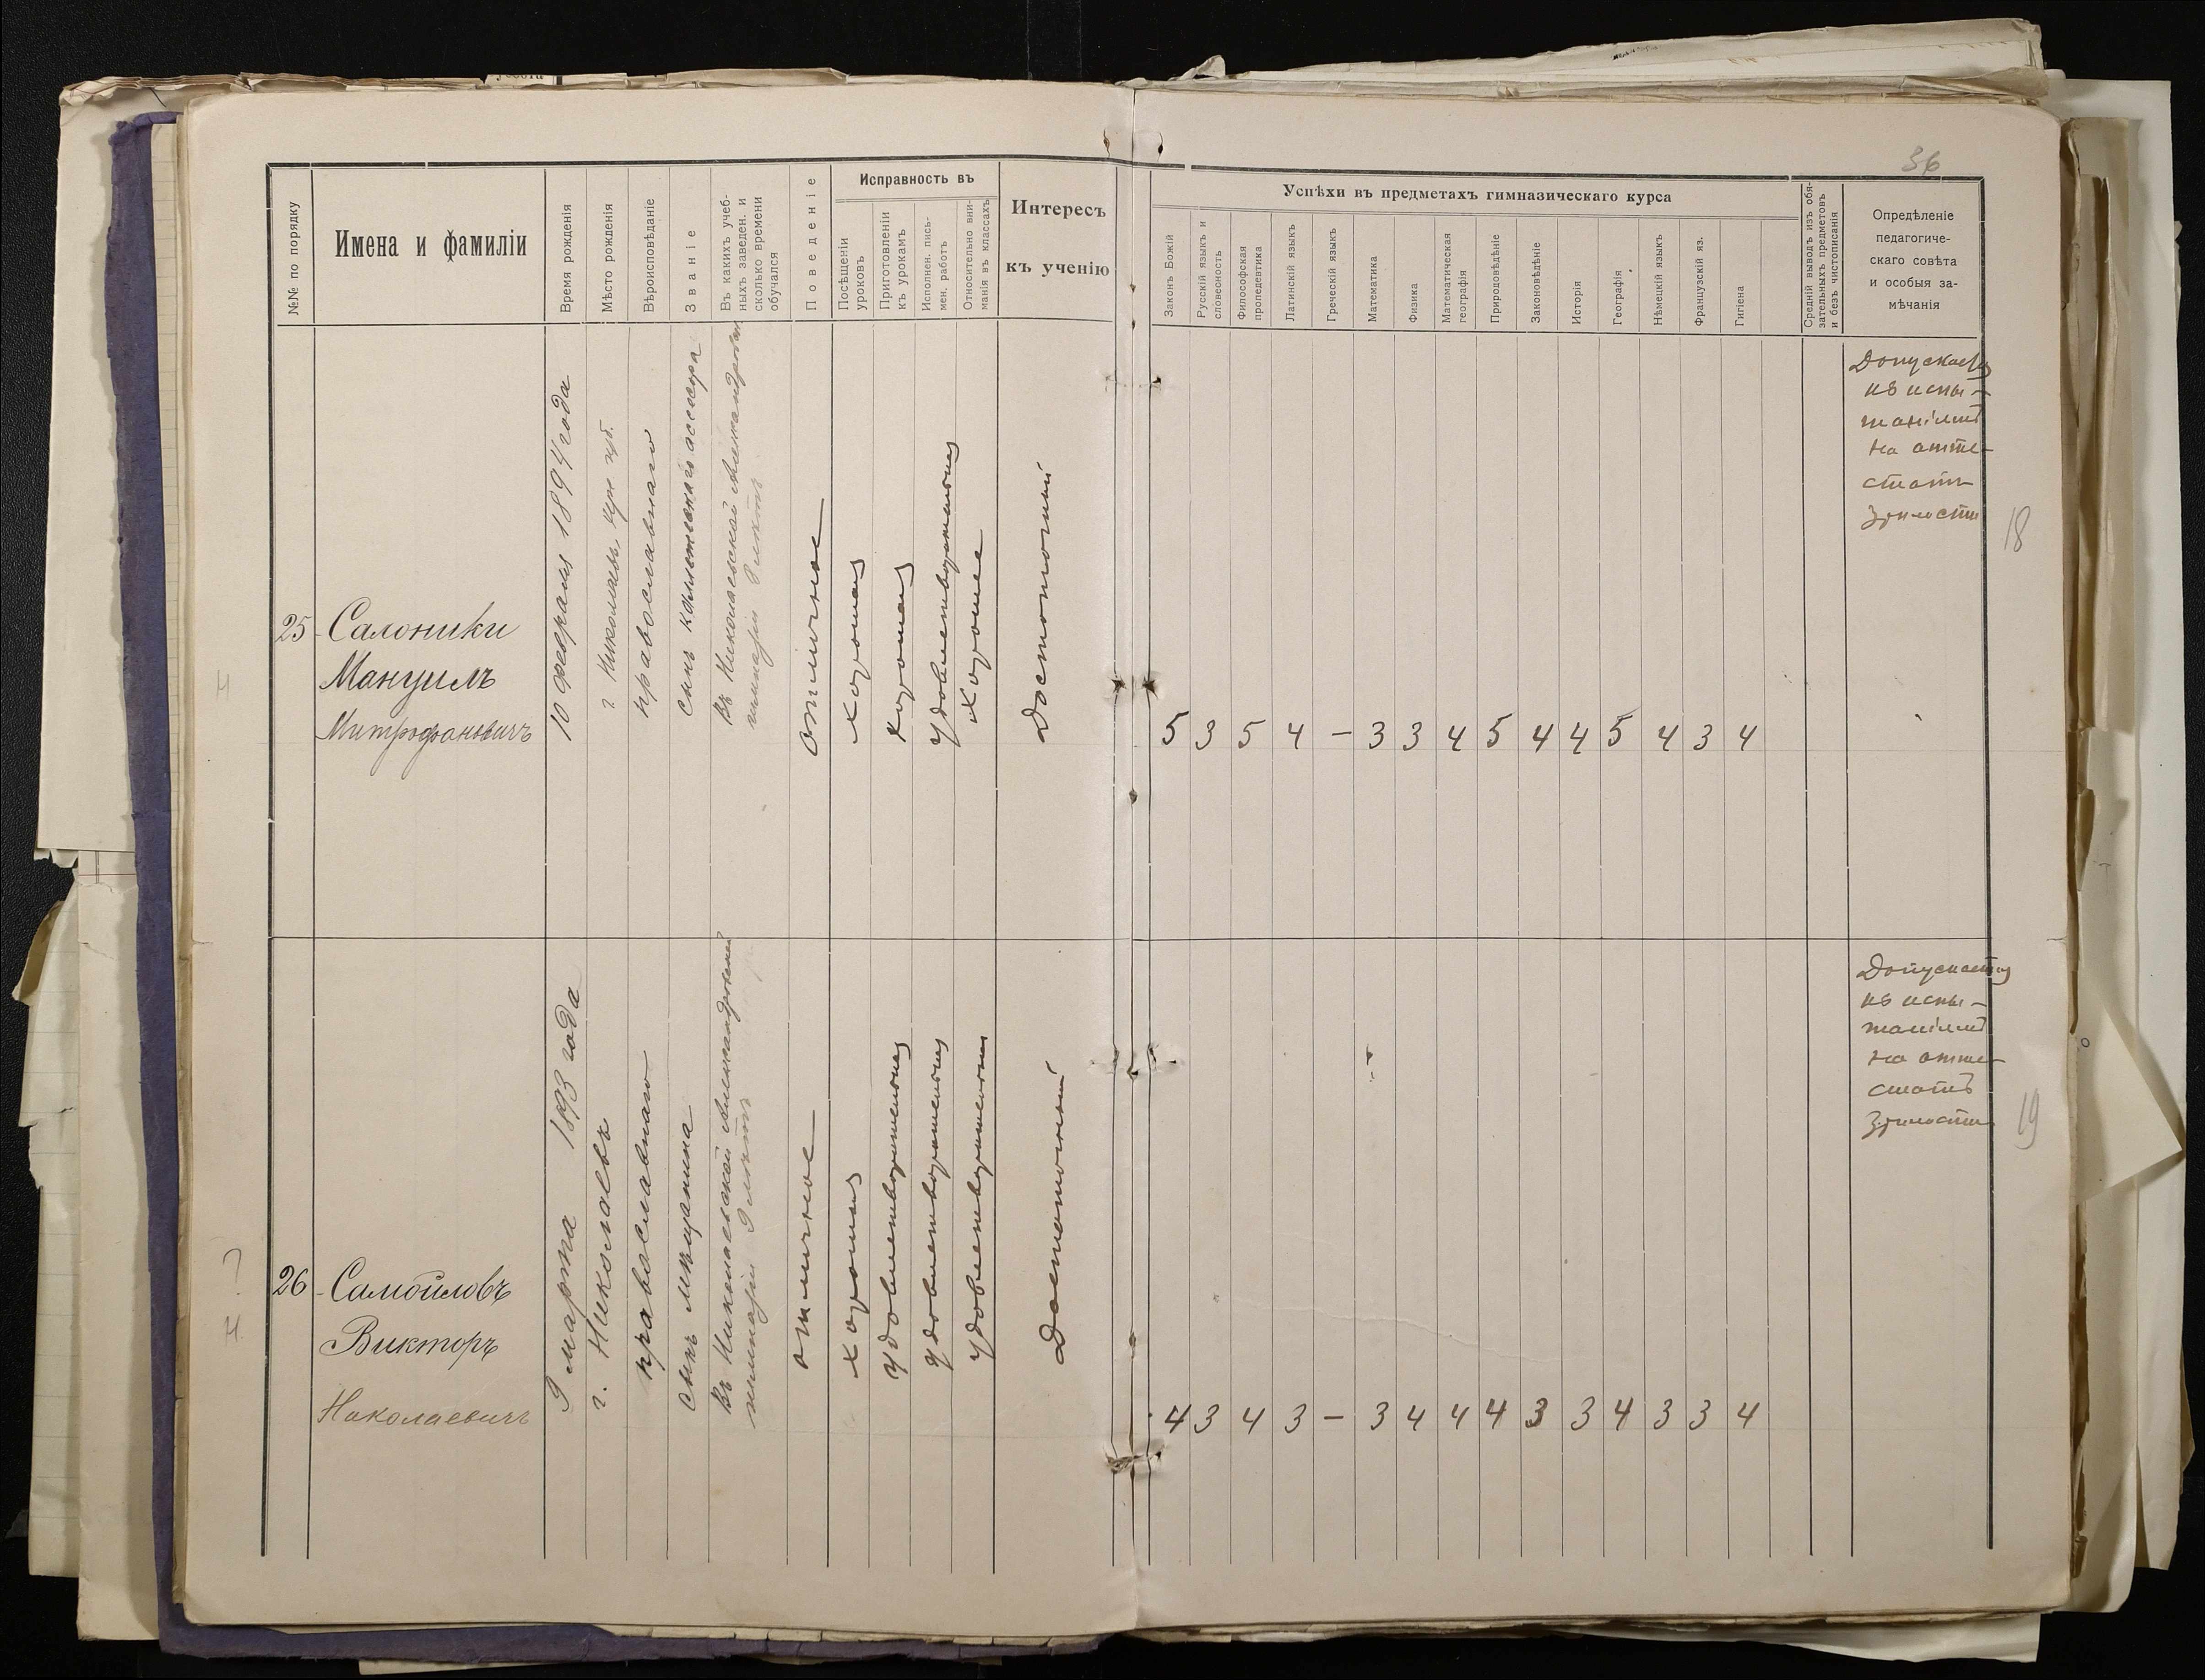 36
№№ по порядку
Имена и фамиліи
Время рожденія
Мѣсто рожденія
Вѣроисповѣданіе
Званіе
Въ какихъ учеб-
ныхъ заведен. и
сколько времени
обучался
Поведеніе
Исправность въ
Посѣщеніи
уроковъ
Приготовленіи
къ урокамъ
Исполнен. пись-
мен. работъ
Относительно вни-
манія въ классахъ
Интересъ
къ ученію
Успѣхи въ предметахъ гимназическаго курса
Законъ Божій
Русскій языкъ и
словесность
Философская
пропедевтика
Латинскій языкъ
Греческій языкъ
Математика
Физика
Математическая
географія
Природовѣдѣніе
Законовѣдѣніе
Исторія
Географія
Нѣмецкій языкъ
Французскій яз.
Гигіена
Средній выводъ изъ обя-
зательныхъ предметовъ
и безъ чистописанія
Опредѣленіе
педагогиче-
скаго совѣта
и особыя за-
мѣчанія
25
Салоники
Мануилъ
Митрофановичъ
10 февраля 1894 года
г. Николаевъ, Хер. губ.
православнаго
Сынъ коллежскаго ассесора
Въ Николаевской Александровской
гимназіи 8 лѣтъ
отличное
хорошая
хорошая
удовлетворительная
хорошее
Достаточный
5 3 5 4 – 3 3 4 5 4 4 5 4 3 4
Допускается
къ испы-
таніямъ
на атте-
статъ
зрѣлости
18
4
26
Самойловъ
Викторъ
Николаевичъ
9 марта 1893 года
г. Николаевъ
православнаго
Сынъ мѣщанина
Въ Николаевской Александровской
гимназіи 9 лѣтъ
отличное
хорошая
удовлетворительная
удовлетворительная
удовлетворительная
Достаточный
4 3 4 3 – 3 4 4 4 3 3 4 3 3 4
Допускается
къ испы-
таніямъ
на атте-
статъ
зрѣлости
19
?
4